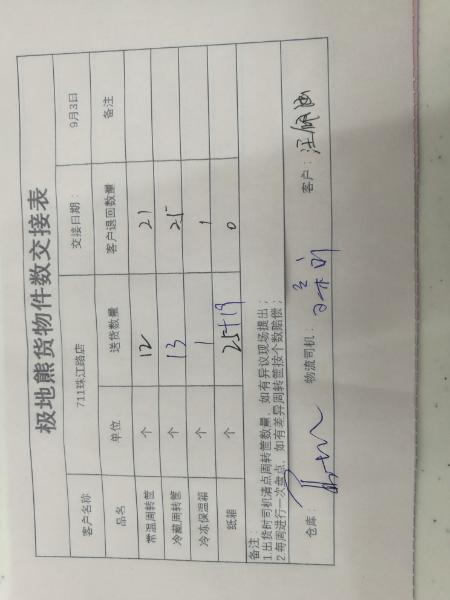 极地熊货物件数交接表
客户名称 711珠江路店 交接日期： 9月3日
品名 单位 送货数量 客户退回数量 备注
常温周转筐 个 12 21
冷藏周转筐 个 13 25
冷冻保温箱 个 1 1
纸箱 个 25+19 0
备注
1.出货时司机清点周转筐数量，如有异议现场提出；
2.每周进行一次盘点，如有差异周转筐按个数赔偿；
仓库： 物流司机： 客户：